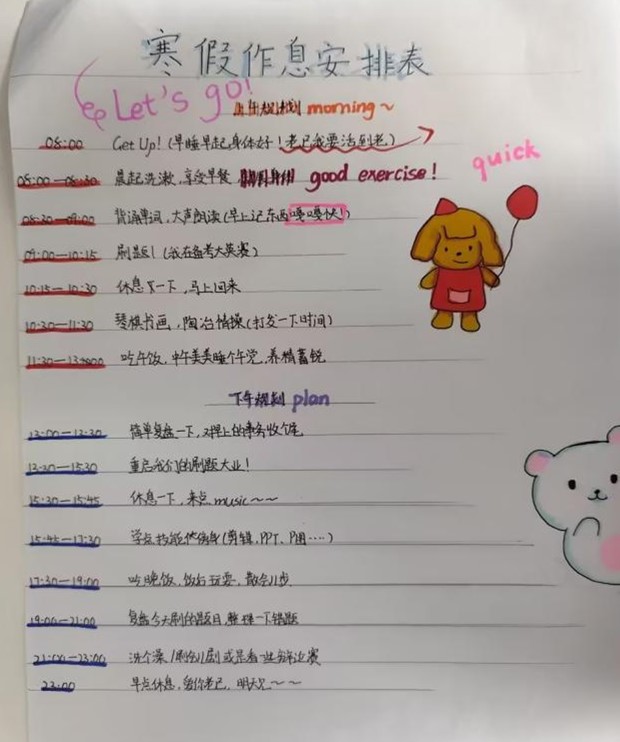 寒假作息安排表
Let's go!
上午规划 morning~
08:00 Get Up! (早睡早起身体好!老已我要活到老)
quick
08:00—08:30 晨起洗漱,享受早餐 good exercise!
08:30—09:00 背诵单词,大声朗读(早上记东西嘎嘎快!)
09:00—10:15 刷题!(我在备考大英赛)
10:15—10:30 休息一下,马上回来
10:30—11:30 琴棋书画,陶冶情操(打发一下时间)
11:30—13:00 吃午饭,中午美美睡个午觉,养精蓄锐
下午规划 plan
13:00—13:30 简单复盘一下,对早上的事务收个尾
13:30—15:30 重启我们的刷题大业!
15:30—15:45 休息一下,来点music~~
15:45—17:30 学点技能傍身(剪辑,PPT、P图....)
17:30—19:00 吃晚饭,饭后玩耍,散会儿步
19:00—21:00 复盘今天刷的题目,整理一下错题
21:00—23:00 洗个澡,刷会儿剧或是看一些辩论赛
23:00 早点休息,爱你老已,明天见~~